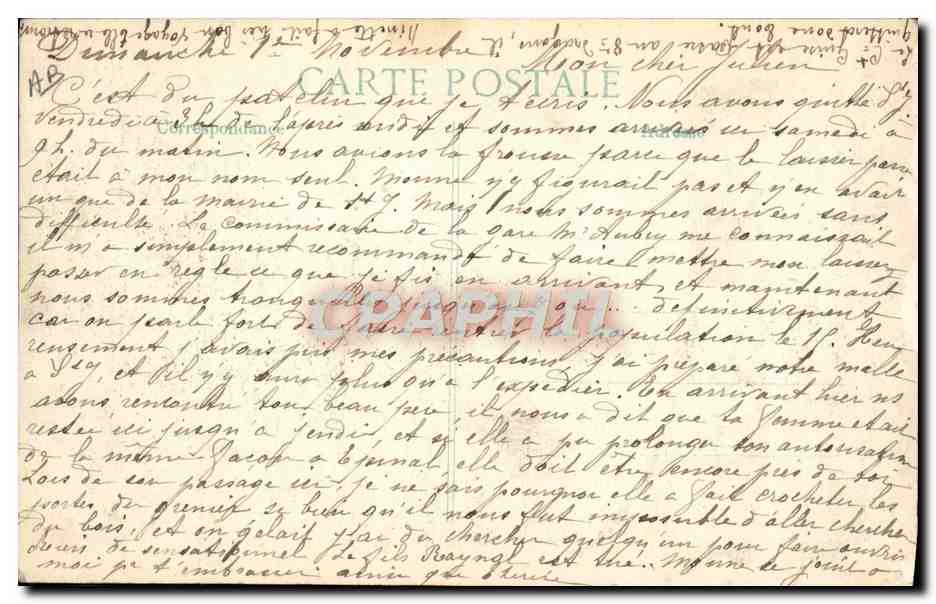 Dimanche 1er Novembre
Mon cher Julien
AB
CARTE POSTALE
C'est du patelin que je t'écris. Nous avons quitté St J.
Correspondance
vendredi à 3h de l'après midi et sommes arrivés ici samedi à
9h. du matin. Nous avions la frousse parce que le laissez passer
était à mon nom seul. Moune n'y figurait pas et j'en avais
un que de la mairie de St J. Mais nous sommes arrivés sans
difficulté. Le commissaire de la gare Mr Aubry me connaissait
il m'a simplement recommandé de faire mettre mon laissez
passer en règle ce que je fis en arrivant, et maintenant
nous sommes tranquilles jusqu'au ... définitivement
car on parle fort de faire rentrer la population le 15. Heu
reusement j'avais pris mes précautions, j'ai préparé notre malle
à St J, et il n'y aura plus qu'à l'expédier. En arrivant hier ns
avons rencontré ton beau père il nous a dit que ta femme était
restée ici jusqu'à jeudi, et si elle a pu prolonger son autorisation
de la même façon à Epinal, elle doit être encore près de toi
Lors de son passage ici je ne sais pourquoi elle a fait crocheter les
portes du grenier si bien qu'il nous fut impossible d'aller chercher
du bois, et on gelait j'ai dû chercher quelqu'un pour faire ouvrir
Rien de sensationnel. Le fils Raynal est tué. Moune se joint à
moi pr t'embrasser ainsi que Thérèse
CPAPHIL